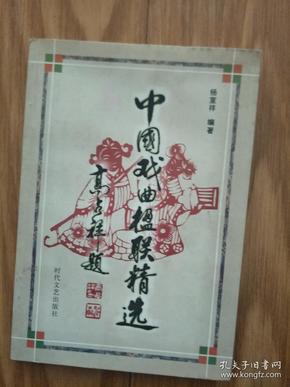 杨富祥 编著
中國戏曲楹联精选
高占祥题
时代文艺出版社
孔夫子旧书网